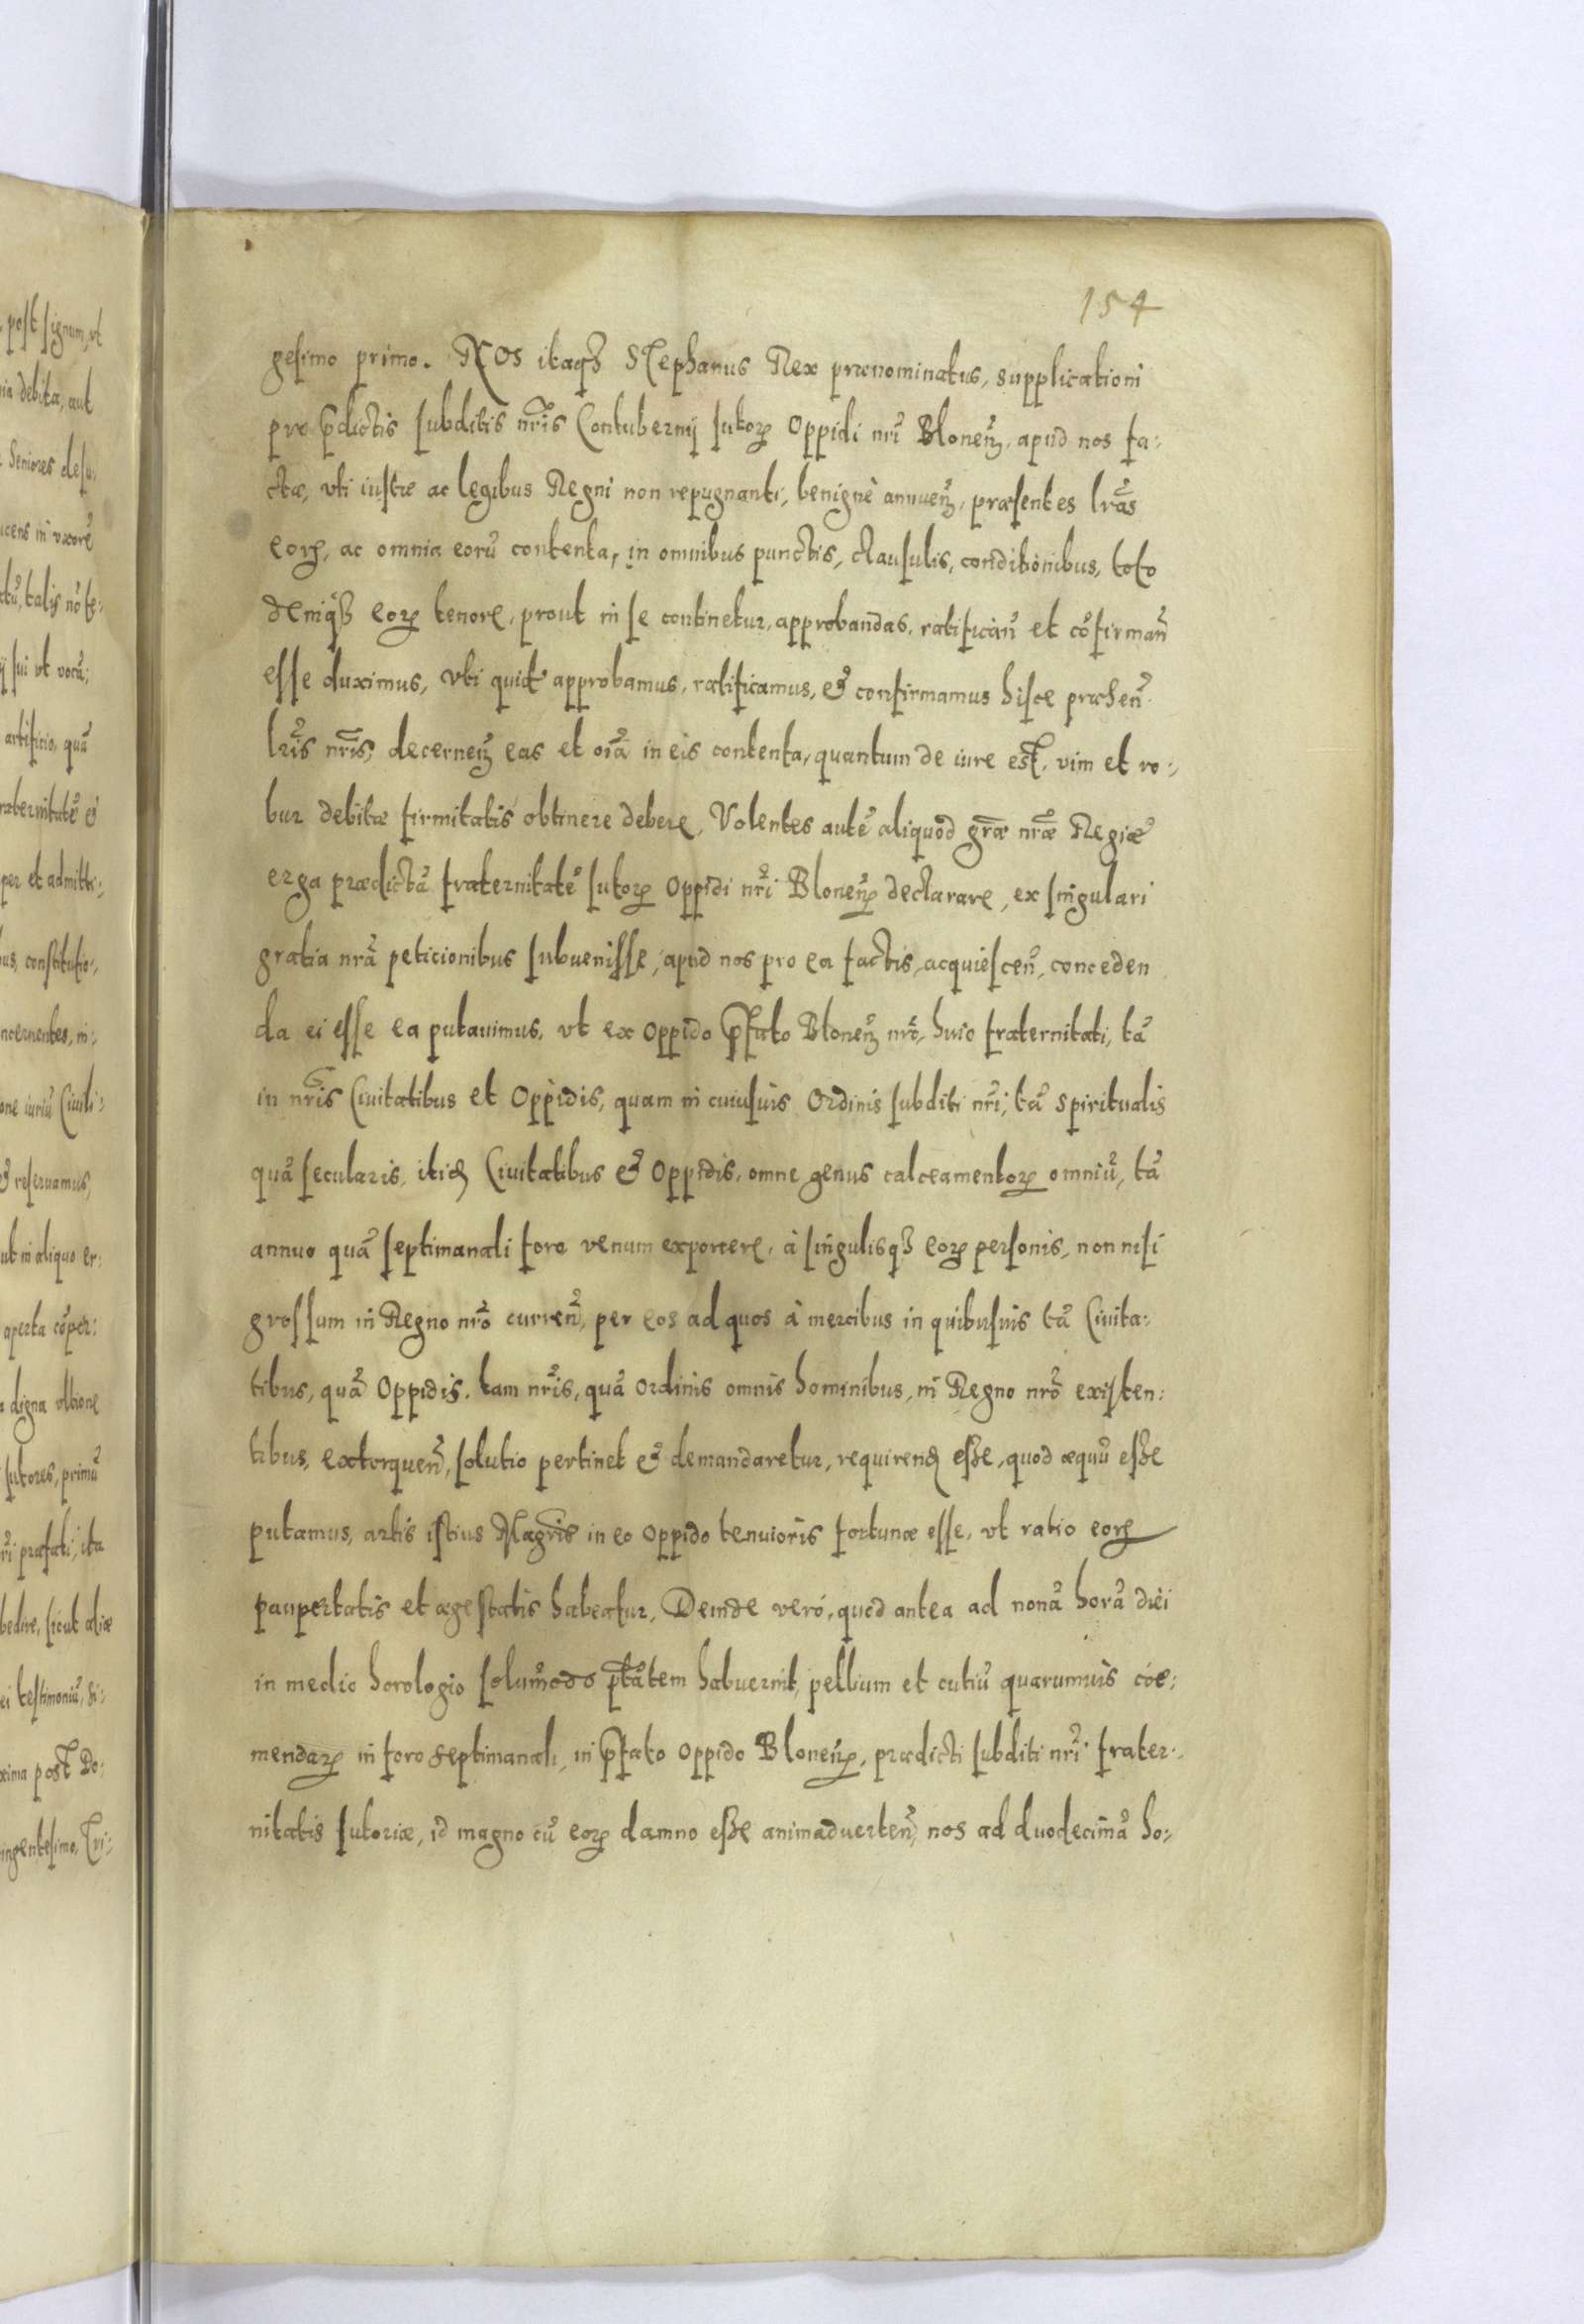 154
gesimo primo. NOS itaqꝫ Stephanus Rex prænominatus, supplicationi
pro p̄dictis subditis nr̄is Contubernij sutorꝝ Oppidi nr̄i Blonen̄, apud nos fa:
ctæ, vti iustæ ac legibus Regni non repugnanti, benignè annuen̄, præsentes lr̄as
eorꝝ, ac omnia eorū contenta, in omnibus punctis, clausulis, conditionibus, toto
deniqꝫ eorꝝ tenore, prout in se continetur, approbandas, ratifican̄ et cōfirman̄
esse duximus, vti quidē approbamus, ratificamus, & confirmamus hisce præsen̄
lr̄is nr̄is, decernen̄ eas et oīa in eis contenta, quantum de iure est, vim et ro:
bur debitæ firmitatis obtinere debere, Volentes autē aliquod gr̄æ nr̄æ Regiæ
erga prædictā fraternitatē sutorꝝ Oppidi nr̄i Blonen̄ declarare, ex singulari
gratia nr̄a peticionibus subuenisse, apud nos pro ea factis, acquiescen̄, conceden
da ei esse ea putauimus, vt ex oppido p̄fato Blonen̄ nr̄o, huic fraternitati, tā
in nr̄is Ciuitatibus et Oppidis, quam in cuiusuis Ordinis subditi nr̄i, tā spiritualis
quā secularis, itid̄ Ciuitatibus & Oppidis, omne genus calceamentorꝝ omniū, tā
annuo quā septimanali foro venum exponere, à singulisqꝫ eorꝝ personis, non nisi
grossum in Regno nr̄o curren̄, per eos ad quos à mercibus in quibusuis tā Ciuita:
tibus, quā Oppidis, tam nr̄is, quā ordinis omnis hominibus, in Regno nr̄o existen:
tibus, extorquen̄, solutio pertinet & demandaretur, requirend̄ esse, quod æquū esse
putamus, artis istius Magr̄is in eo oppido tenuioris fortunæ esse, vt ratio eorꝝ
paupertatis et ægestatis habeatur, Deinde verò, quod antea ad nonā horā diei
in medio horologio solūmodo p̄tātem habuerint, pellium et cutiū quarumuis cóe:
mendarꝝ in foro septimanali, in p̄fato oppido Blonen̄, prædicti subditi nr̄i frater:
nitatis sutoriæ, id magno cū eorꝝ damno esse animaduerten̄, nos ad duodecimā ho: